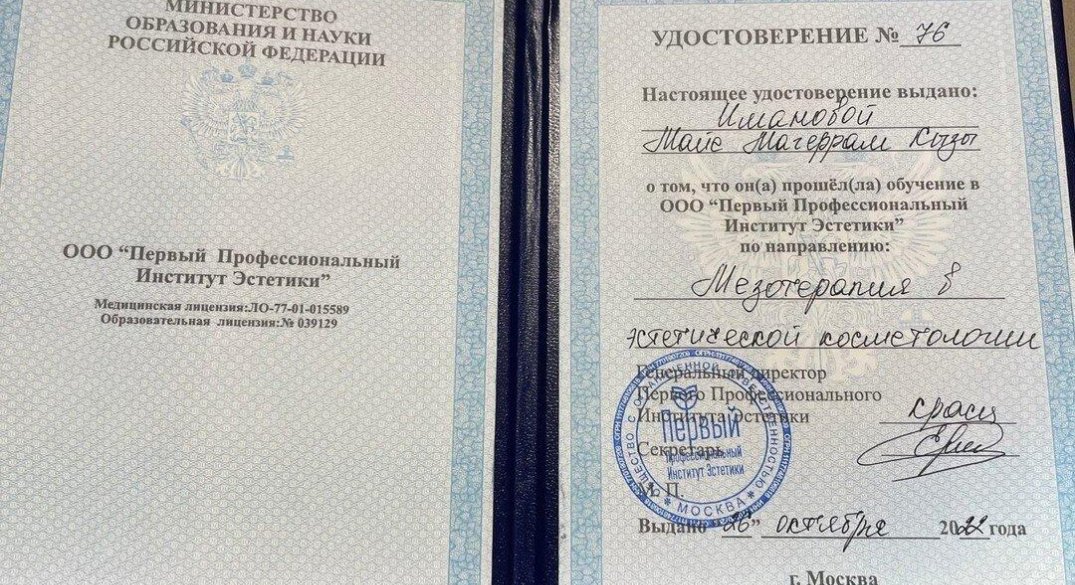 МИНИСТЕРСТВО
ОБРАЗОВАНИЯ И НАУКИ
РОССИЙСКОЙ ФЕДЕРАЦИИ
ООО “Первый Профессиональный
Институт Эстетики”
Медицинская лицензия:ЛО-77-01-015589
Образовательная лицензия:№ 039129
УДОСТОВЕРЕНИЕ № 76
Настоящее удостоверение выдано:
Имановой
Майе Магеррам Кызы
о том, что он(а) прошёл(ла) обучение в
ООО “Первый Профессиональный
Институт Эстетики”
по направлению:
Мезотерапия в
эстетической косметологии
Генеральный директор
Первого Профессионального
Института Эстетики
Секретарь
М. П.
ОБЩЕСТВО С ОГРАНИЧЕННОЙ ОТВЕТСТВЕННОСТЬЮ
Первый
Профессиональный
Институт Эстетики
* МОСКВА *
Выдано “26” октября 2022 года
г. Москва